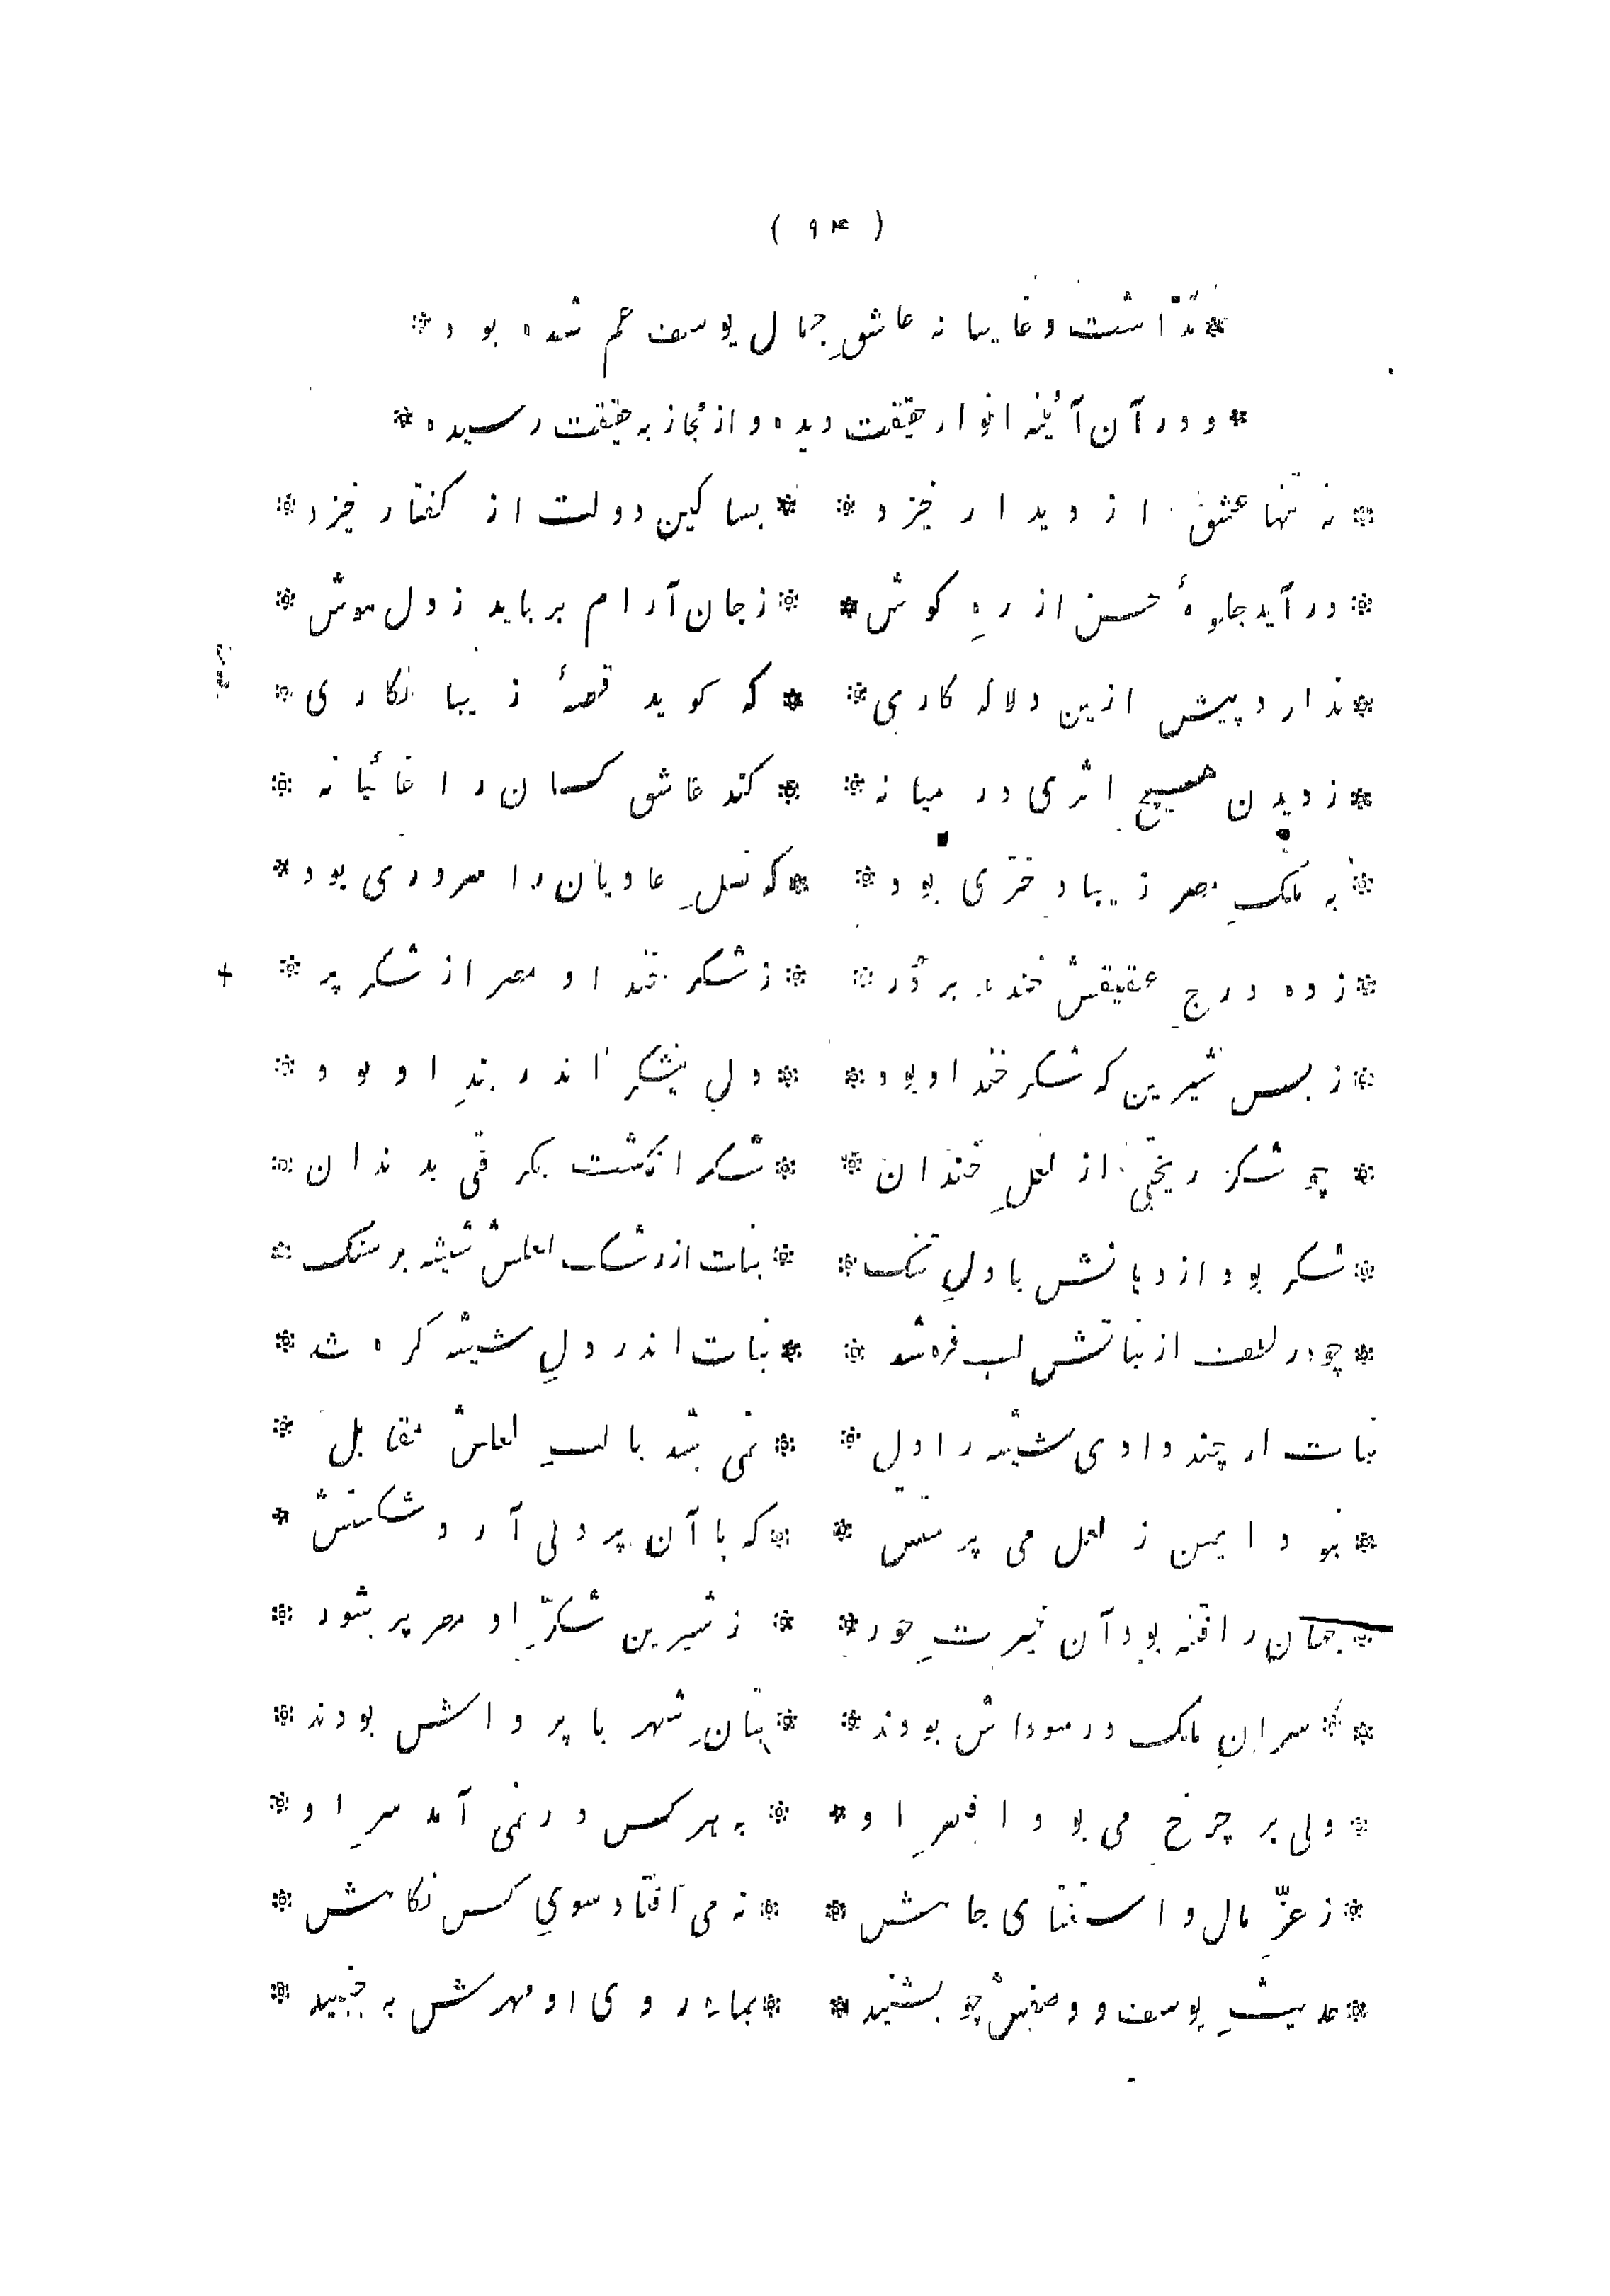 ( ۹۴ )
* نداشت و غایبانه عاشقِ جمال یوسف عم شده بود *
* و در آن آئینه انوار حقیقت دیده و از مُجاز به حقیقت رسیده *
* نه تنها عشق از دیدار خیزد * * بسا کین دولت از کفتار خیزد *
* در آید جلوۀ حسن از رهِ کوش * * ز جان آرام برباید ز دل هوش *
* ندارد پیش ازین دلاله کاری * * که کوید قصۀ زیبا نکاری *
* ز دیدن هیچ اثری در میانه * * کند عاشق کسان را غائبانه *
* به ملکِ مصر زیبا دختری بود * * که نسلِ عادیان را سروری بود *
* زده درجِ عقیقش خنده بر دُر * * ز شکر خند او مصر از شکر پر *
* ز بس شیرین که شکر خند او بود * * دلِ نیشکر اندر بندِ او بود *
* چو شکر ریختی از لعلِ خندان * * شکر انکشت بکرفتی بدندان *
* شکر بود از دهانش با دلِ تنک * * نبات از رشک لعلش شیشه بر سنک *
* چو در لطف از نباتش لب فره شد * * نبات اندر دلِ شیشه کره شد *
نبات ار چند دادی شیشه را دل * * نمی شد با لبِ لعلش مقابل *
* نبود ایمن ز لعل می پرستش * * که با آن پر دلی آرد شکستش *
* جهان را فتنه بود آن غیرتِ حور * * ز شیرین شکّرِ او مصر پر شور *
* * سرانِ ملک در سوداش بودند * * بتانِ شهر با پرواش بودند *
* ولی بر چرخ می بود افسرِ او * * به هر کس در نمی آمد سرِ او *
* ز عزّ مال و استغنای جاهش * * نه می افتاد سوی کس نکاهش *
* حدیثِ یوسف و وصفش چو بشنید * * بماه روی او مهرش به جنبید *